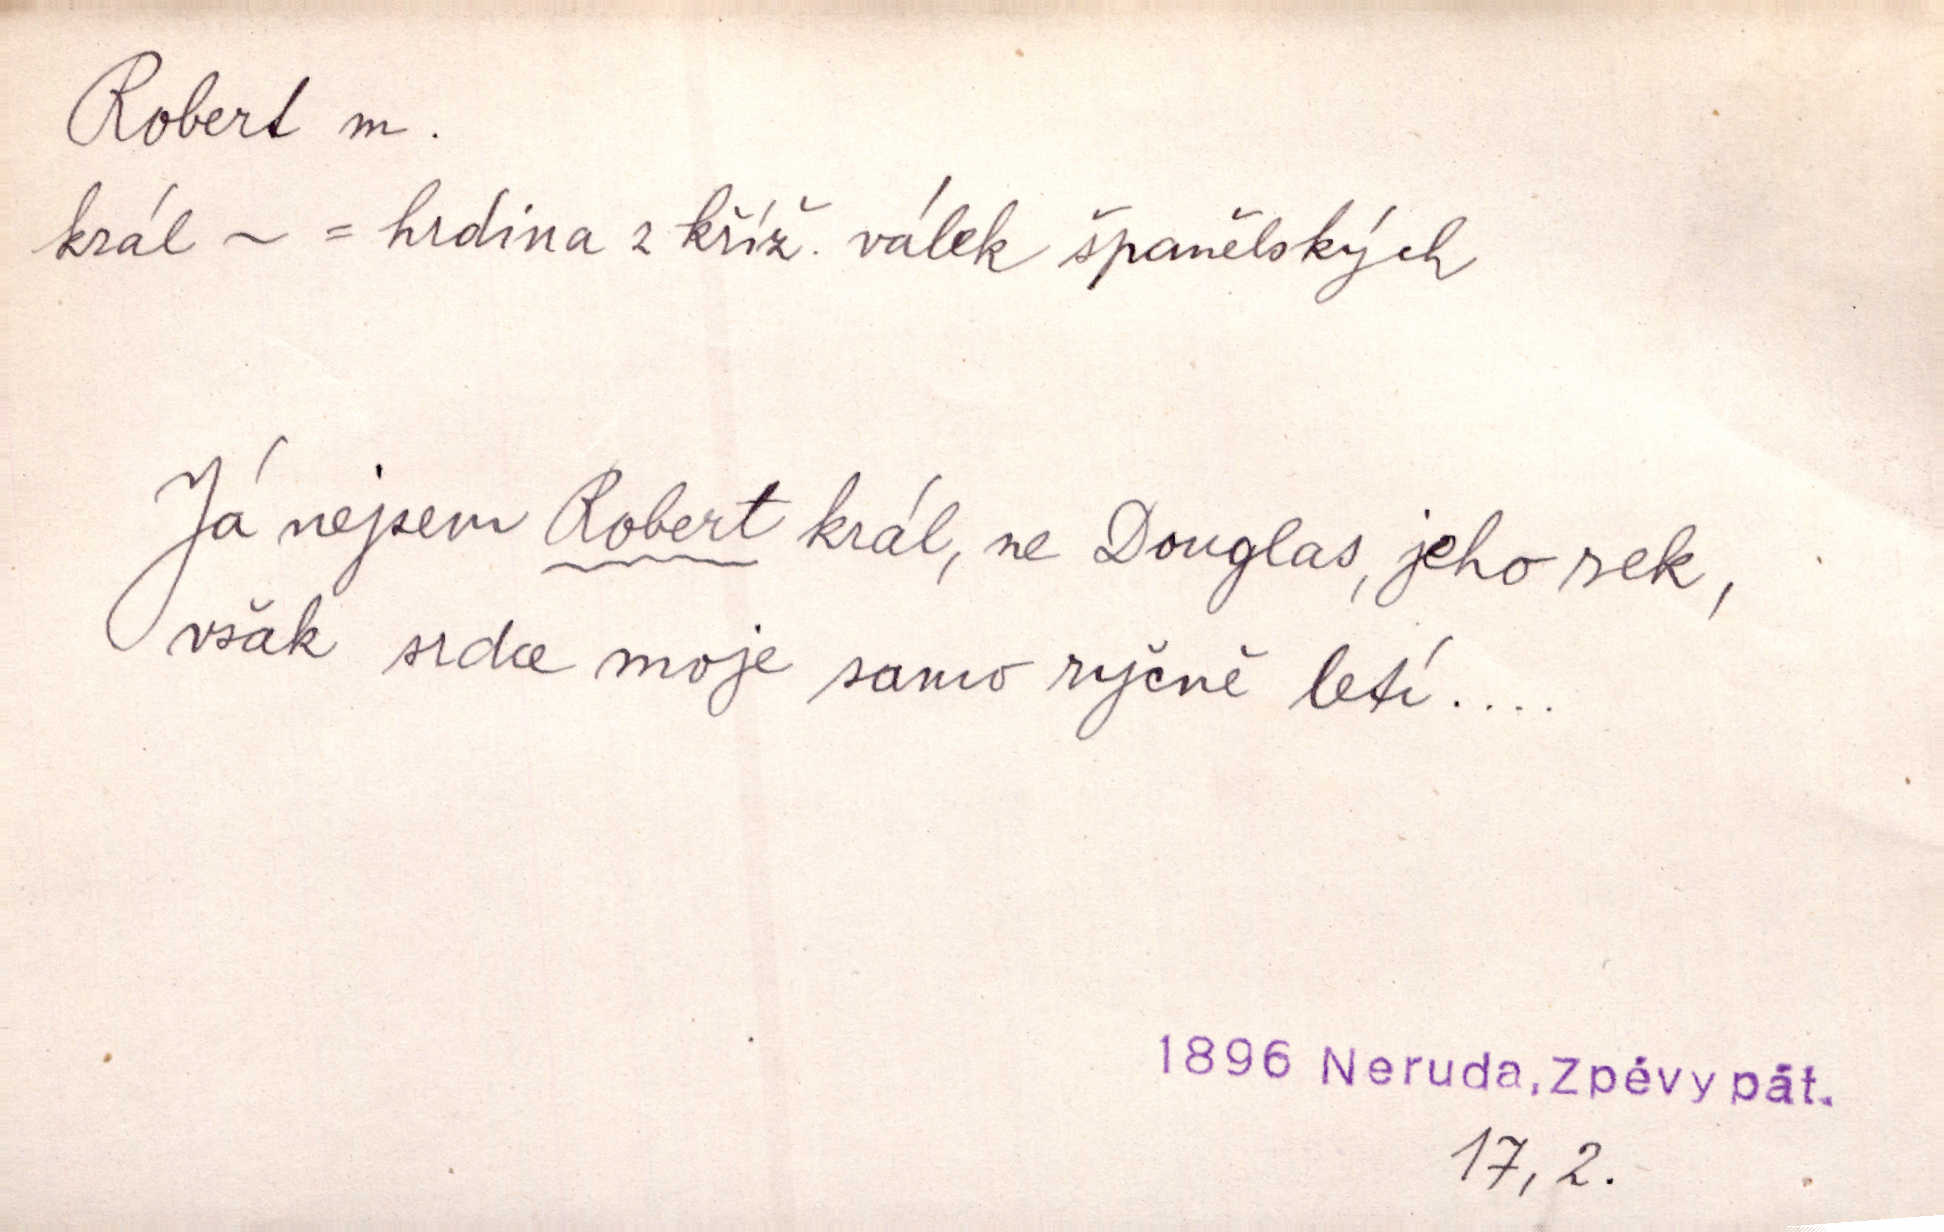 Robert m.
král ~ = hrdina z kříž. válek španělských
Já nejsem Robert král, ne Douglas, jeho rek,
však srdce moje samo ryčně letí....
1896 Neruda, Zpěvy pát.
17, 2.